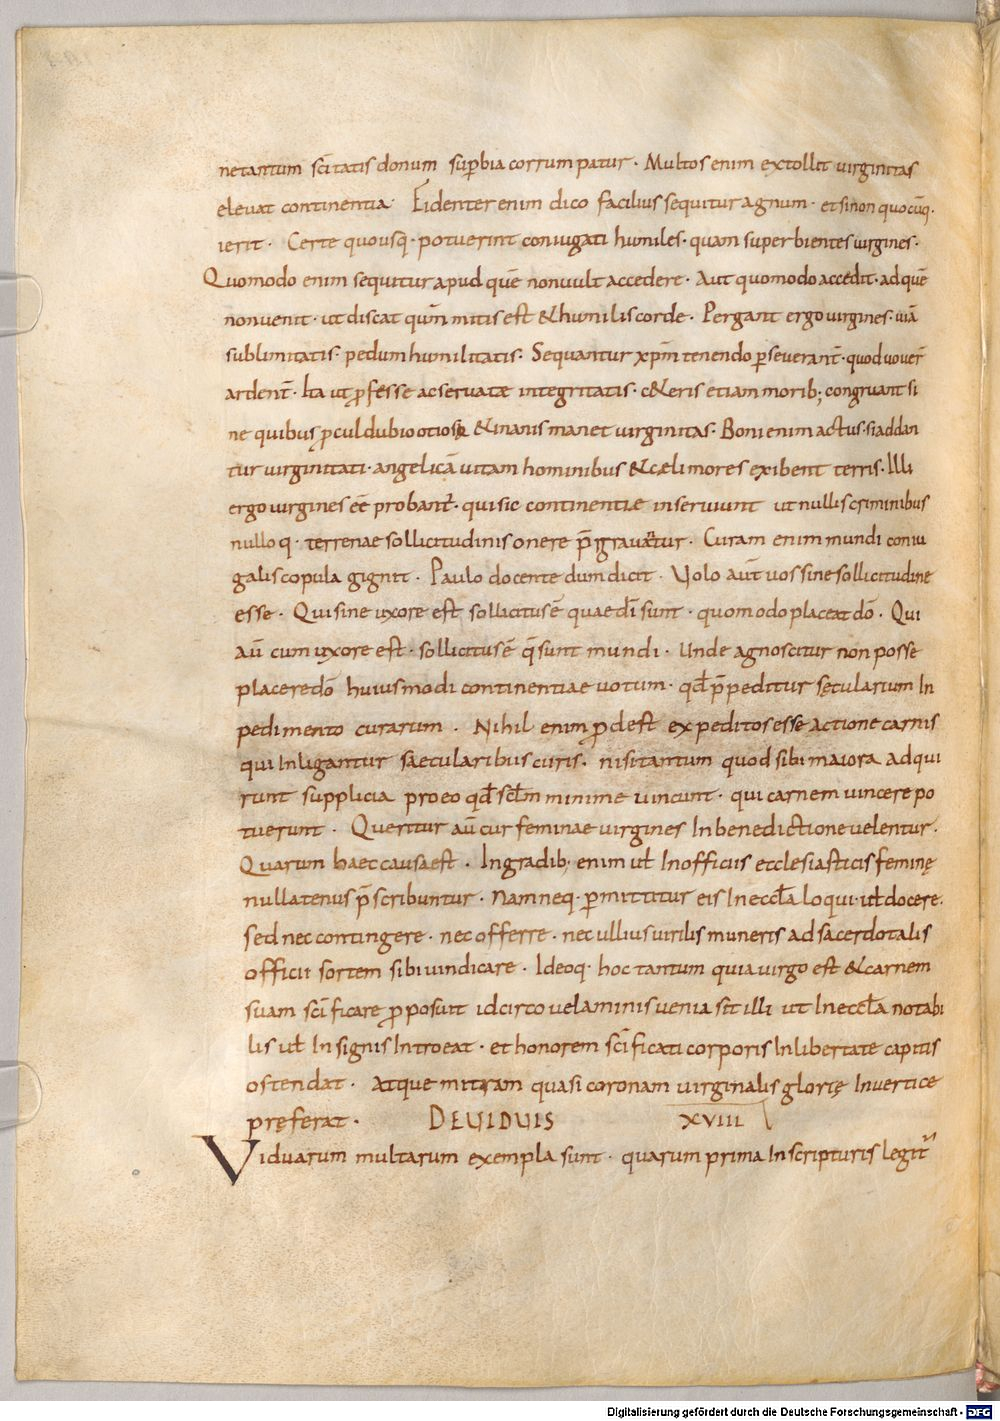 netantum sc̄itatis donum sup̱bia corrumpatur · Multos enim extollit virginitas
elevat continentia · Fidenter enim dico facilius sequitur agnum · et si non quocūq·
ierit · Certe quousq· potuerint coniugati humiles · quam superbientes virgines ·
Quomodo enim sequitur apud quē non vult accedere · Aut quomodo accedit · ad quē
non venit · ut discat qūm mitis est & humilis corde · Pergant ergo virgines · viā
sublimitatis · pedum humilitatis · Sequantur xp̄m tenendo p̱severant̄ · quod vover̄
ardent̄ · Ita ut p̱fessæ ac servatæ integritatis · c&eris etiam morib; congruant si
ne quibus p̱cul dubio otiosa & inanis manet virginitas · Boni enim actus · si addan
tur virginitati · angelicā vitam hominibus & cæli mores exibent terris · Illi
ergo virgines eē probant̄ · qui sic continentiæ inserviunt ut nullis criminibus
nulloq· terrenae sollicitudinis onere p̄gravatur · Curam enim mundi coniu
galis copula gignit · Paulo docente dum dicit · Volo aūt vos sine sollicitudine
esse · Qui sine uxore est sollicitus ē quae dī sunt · quomodo placeat dō · Qui
aū cum uxore est · sollicitus ē q̄ sunt mundi · Unde agnoscitur non posse
placere dō huiusmodi continentiae votum · qd̄ p̄peditur secularium In
pedimento curarum · Nihil enim p̱dest expeditos esse actione carnis
qui Inligantur sæcularibus curis · nisi tantum quod sibi maiora adqui
runt supplicia pro eo qd̄ scl̄m minime vincunt · qui carnem vincere po
tuerunt · Queritur aū cur feminae virgines In benedictione velentur ·
Quarum haec causa est · In gradib; enim ul̄ In officiis ecclesiasticis feminę
nullatenus p̄scribuntur · Nam neq· p̱mittitur eis In eccl̄a loqui · ul̄ docere ·
sed nec contingere · nec offerre · nec ullius virilis muneris ad sacerdotalis
officii sortem sibi vindicare · Ideoq· hoc tantum quia virgo est & carnem
suam sc̄ificare p̱posuit idcirco velaminis venia fit illi ut In eccl̄a notabi
lis ul̄ Insignis Introeat · et honorem sc̄ificati corporis In libertate capitis
ostendat · Atque mitram quasi coronam virginalis glorię In vertice
preferat · DE VIDUIS XVIII
Viduarum multarum exempla sunt · quarum prima In scripturis legit̄